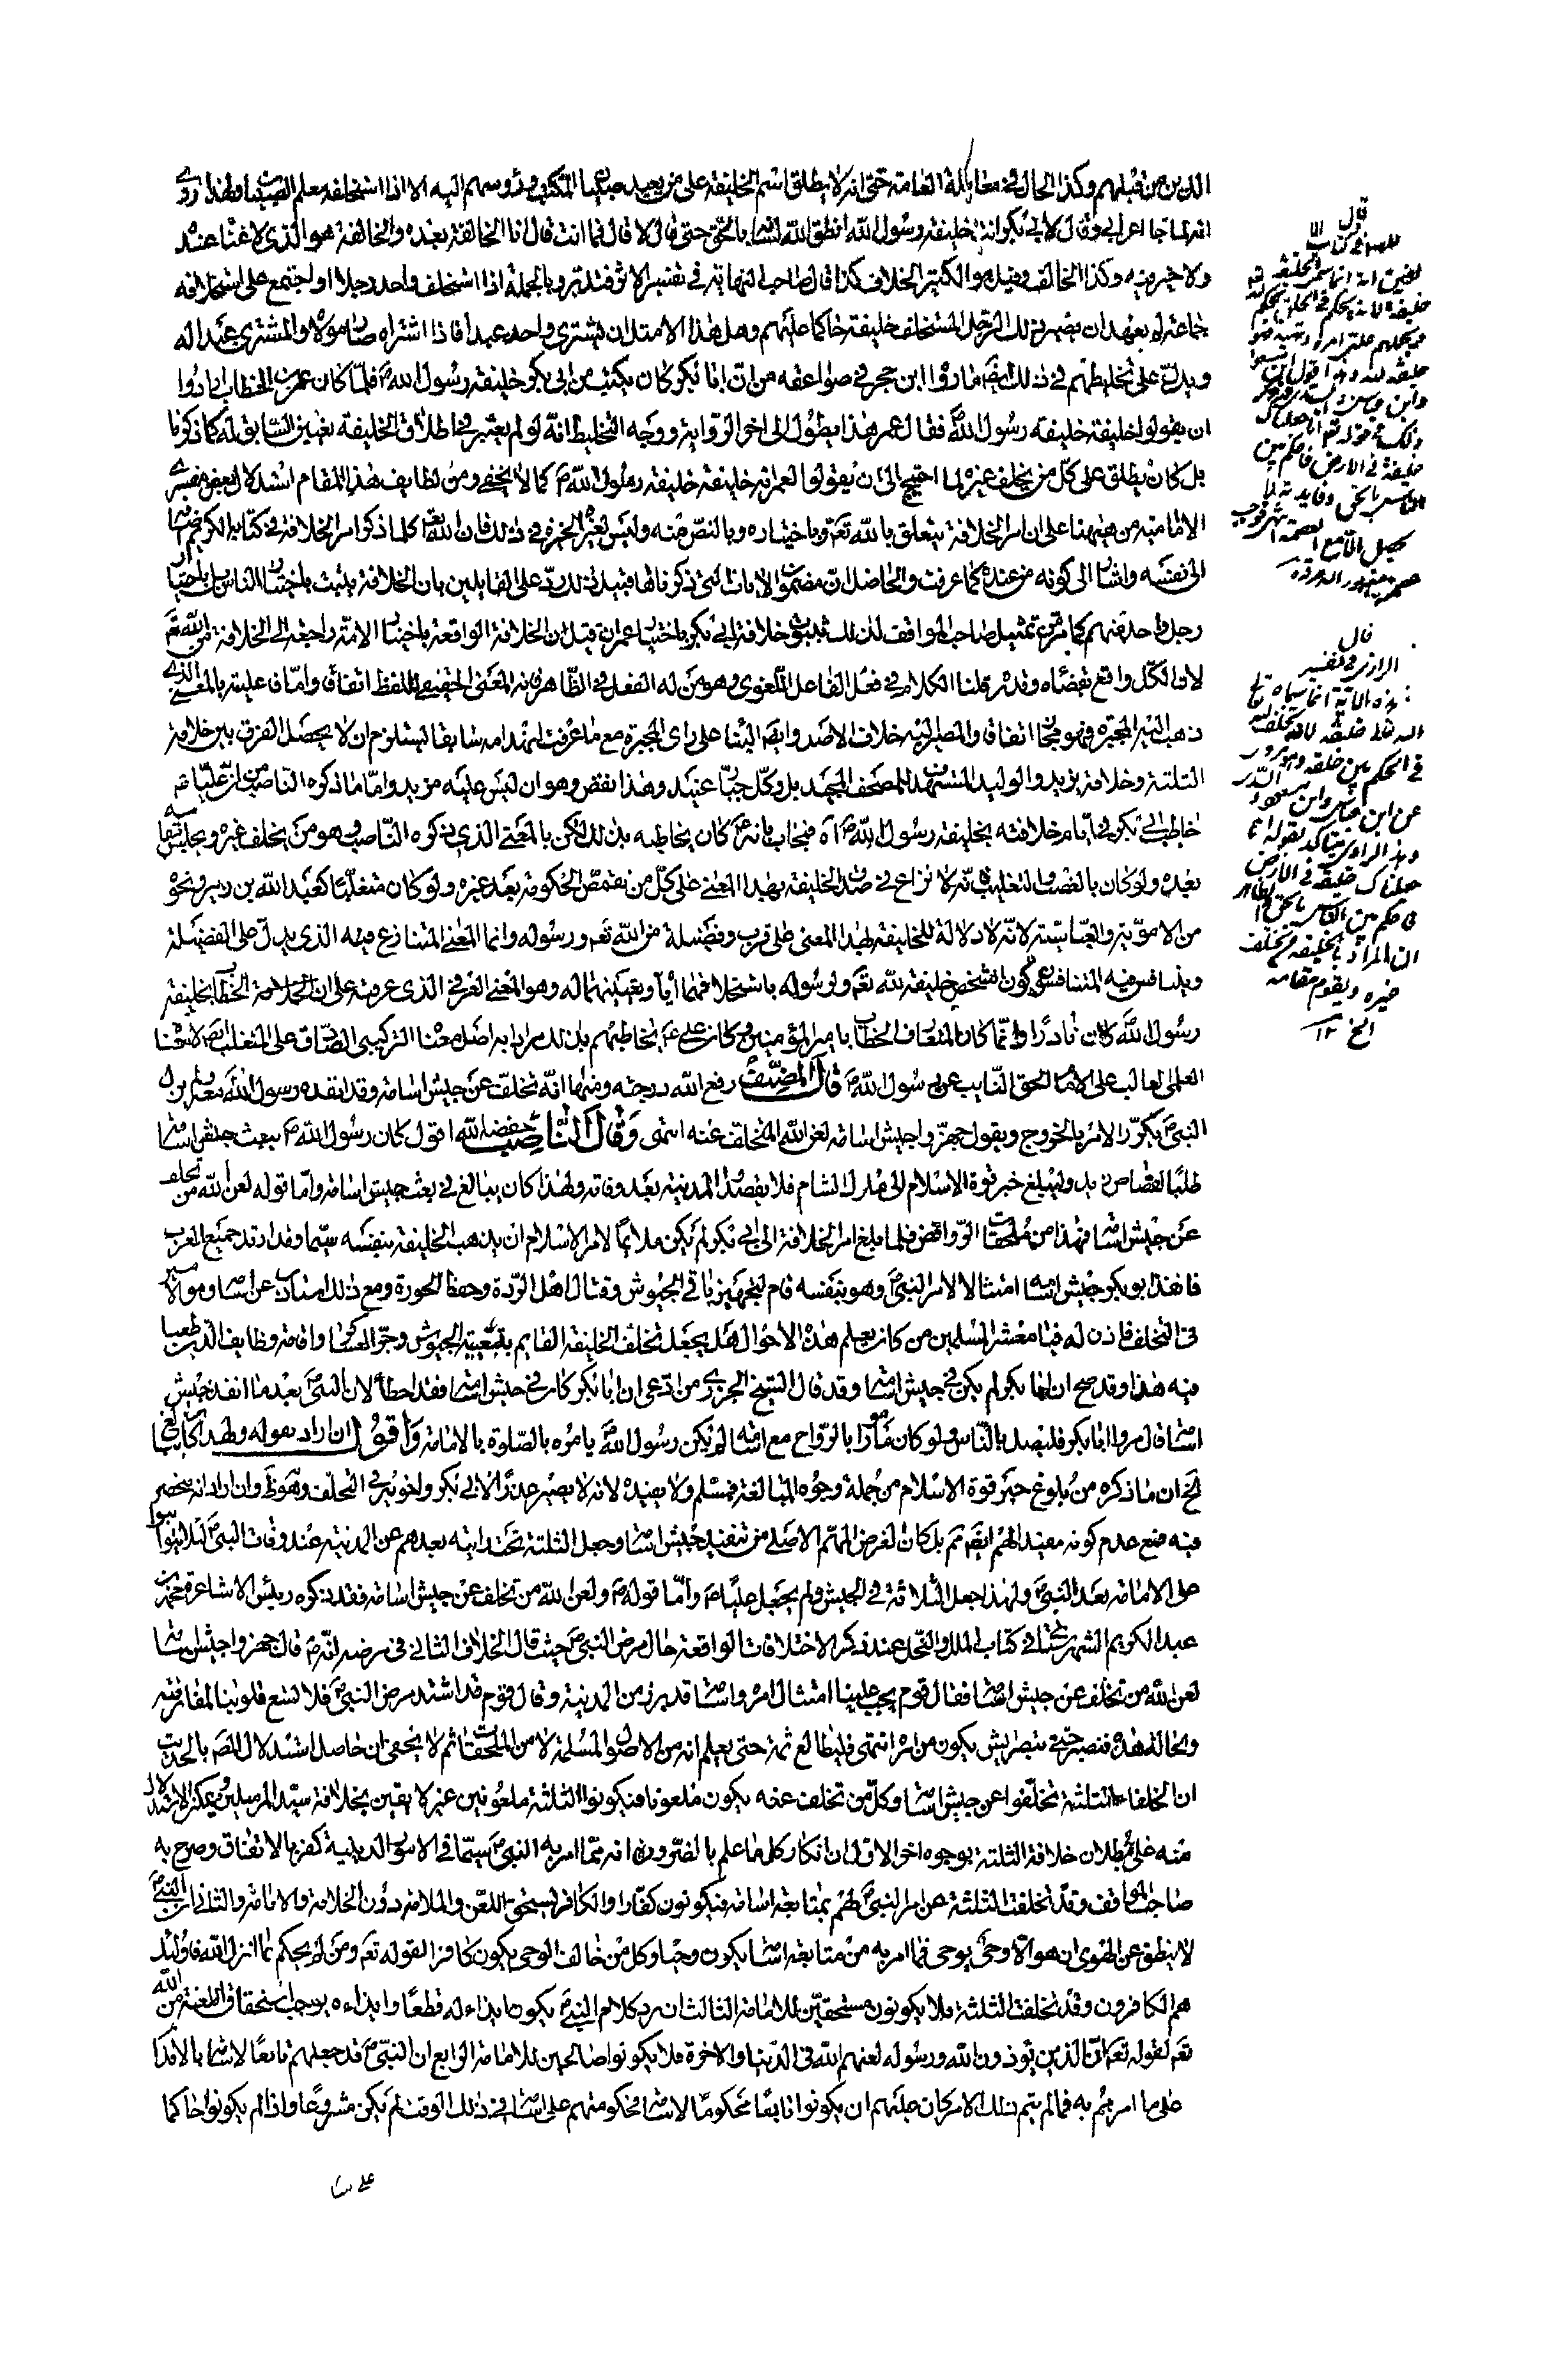 الذين من قبلهم وكذا الحال في معاملة العامة حتى انه لا يطلق اسم الخليفة على من يعيد صبيان المكتب ودروسهم اليه الا اذا استخلفه معلم الصبيان ولهذا روى
انه لما جاء اعرابي وقال لابي بكر انت خليفة رسول الله انطق الله لسانه بالحق حتى قال لا قال فما انت قال انا الخالفة بعده والخالفة هو الذي لا غناء عنده
ولا خير فيه وكذا الخالف وقيل هو الكثير الخلاف كذا قال صاحب النهاية في تفسير الاثر فتدبر وبالجملة اذا استخلف واحد رجلا او اجتمع على استخلافه
جماعة لم يعهد ان يصير ذلك الرجل المستخلف خليفة حاكما عليهم وهل هذا الا مثل ان يشتري واحد عبدا فاذا اشتراه صار مولاه والمشتري عبدا له
ويدل على تخليطهم في ذلك ايضا ما رووا ابن حجر في صواعقه من ان ابا بكر كان يكتب من ابي بكر خليفة رسول الله ص فلما كان عمر بن الخطاب ارادوا
ان يقولوا خليفة خليفة رسول الله ص فقال عمر هذا يطول الى اخر الرواية ووجه التخليط انه لو لم يعتبر في اطلاق الخليفة تعيين السابق له كما ذكرنا
بل كان يطلق على كل من يخلف غيره لما احتيج الى ان يقولوا لعمر انه خليفة خليفة رسول الله ص كما لا يخفى ومن لطايف هذا المقام استدلال بعض مفسري
الامامية من ههنا على ان امر الخلافة يتعلق بالله تعالى وباختياره وبالنص منه وليس لغيره الخيرة في ذلك فان الله تعالى كلما ذكر امر الخلافة في كتابه الكريم اضافها
الى نفسه واشار الى كونه من عنده كما عرفت والحاصل ان مضمون الايات التي ذكرناها قبيل ذلك رد على القايلين بان الخلافة يثبت باختيار الناس بل باختيار
رجل واحد منهم كما مر من تمثيل صاحب المواقف لذلك بثبوت خلافة ابي بكر باختيار عمر فان قيل ان الخلافة الواقعة باختيار الامة راجعة الى الخلافة من الله تعالى
لان الكل واقع بقضاه وقدره قلنا الكلام في فعل الفاعل اللغوي وهو من له الفعل في الظاهر فانه المعنى الحقيقي للفظ اتفاقا واما فاعليته بالمعنى الذي
ذهب اليه المجبرة فهو مجاز اتفاقا والمصير اليه خلاف الاصل وايضا البناء على راى المجبرة مع ما عرفت انهدامه سابقا يستلزم ان لا يحصل الفرق بين خلافة
الثلثة وخلافة يزيد والوليد المستهدف للمصحف المجيد بل وكل جبار عنيد وهذا نقض وهو ان ليس عليه مزيد واما ما ذكره الناصب من ان عليا ع
خاطب ابي بكر في ايام خلافته بخليفة رسول الله ص اه فيجاب بانه ع كان يخاطبه بذلك لكن بالمعنى الذي ذكره الناصب وهو من يخلف غيره ويجلس مجلسه
بعده ولو كان بالغصب والتغليب فانه لا نزاع في صدق الخليفة بهذا المعنى على كل من تقمص الحكومة بعد غيره ولو كان متغلبا كعبد الله بن زبير ونحوه
من الاموية والعباسية لانه لا دلالة للخليفة بهذا المعنى على قرب وفضيلة من الله تعالى ورسوله وانما المعنى المتنازع فيه الذي يدل على الفضيلة
ويتنافس فيه المتنافسون كون شخص خليفة لله تعالى ولرسوله باستخلافهما اياه وتعيينهما له وهو المعنى العرفي الذي عرفته على ان الخطاب بخليفة
رسول الله ص كان نادرا وانما كان المتعارف الخطاب بامير المؤمنين وكان علي ع يخاطبهم بذلك مريدا به اصل معناه التركيبي الصادق على المتغلب ايضا لا معناه
العلمي الغالب على الامام الحق النايب عن رسول الله ص قال المصنف رفع الله درجته ومنها انه تخلف عن جيش اسامة وقد انفذه رسول الله معه ولم يزل
النبي ص يكرر الامر بالخروج ويقول جهزوا جيش اسامة لعن الله المتخلف عنه انتهى وقال الناصب خفضه الله اقول كان رسول الله ص يبعث جيش اسامة
طلبا لقصاص زيد وليبلغ خبر قوة الاسلام الى ملوك الشام فلا يقصدوا المدينة بعد وفاته ولهذا كان يبالغ في بعث جيش اسامة واما قوله لعن الله من تخلف
عن جيش اسامة فهذا من ملحقات الروافض فلما بلغ امر الخلافة الى ابي بكر لم يكن ملايما لامر الاسلام ان يذهب الخليفة بنفسه سيما وقد ارتد جميع العرب
فانفذ ابو بكر جيش اسامة امتثالا لامر النبي ص وهو بنفسه قام لتجهيز باقي الجيوش وقتال اهل الردة وحفظ الحوزة ومع ذلك استاذن عن اسامة وهو امير
في التخلف فاذن له فيا معشر المسلمين من كان يعلم هذه الاحوال هل يجعل تخلف الخليفة القايم بتعبية الجيوش وجر العساكر واقامة وظايف الدين طعنا
فيه هذا وقد صح ان ابا بكر لم يكن في جيش اسامة وقد قال الشيخ الجزري من ادعى ان ابا بكر كان في جيش اسامة فقد اخطا لان النبي ص بعد ما انفذ جيش
اسامة قال مروا ابا بكر فليصل بالناس ولو كان مامورا بالرواح مع اسامة لم يكن رسول الله ص يامره بالصلوة بالامامة واقول ان اراد بقوله ولهذا كان يبالغ
الخ ان ما ذكره من بلوغ خبر قوة الاسلام من جملة وجوه المبالغة فمسلم ولا يفيده لانه لا يصير عذرا لابي بكر واخويه في التخلف وهو ظ وان اراد انه منحصر
فيه فمع عدم كونه مفيدا لهم ايضا ثم بل كان الغرض المهم الاصلي من تنفيذ جيش اسامة وجعل الثلثة تحت رايته بعدهم عن المدينة عند وفات النبي ص لئلا يتوثبوا
على الامامة بعد النبي ص ولهذا جعل الثلاثة في الجيش ولم يجعل عليا ع واما قوله ص ولعن الله من تخلف عن جيش اسامة فقد ذكره رئيس الاشاعرة محمد بن
عبد الكريم الشهرستاني في كتاب الملل والنحل عند ذكر الاختلافات الواقعة حال مرض النبي ص حيث قال الخلاف الثاني في مرضه انه ص قال جهزوا جيش اسامة
لعن الله من تخلف عن جيش اسامة فقال قوم يجب علينا امتثال امره واسامة قد برز من المدينة وقال قوم قد اشتد مرض النبي ص فلا تسع قلوبنا لمفارقته
والحالة هذه فنصبر حتى نبصر ايش يكون من امره انتهى فليطالع ثمة حتى يعلم انه من الاصول المسلمة لا من الملحقات ثم لا يخفى ان حاصل استدلال المص بالحديث
ان الخلفاء الثلثة تخلفوا عن جيش اسامة وكل من تخلف عنه يكون ملعونا فيكونوا الثلثة ملعونين غير لايقين بخلافة سيد المرسلين ويمكن الاستدلال
منه على بطلان خلافة الثلثة بوجوه اخر الاول ان انكار كل ما علم بالضرورة انه مما امر به النبي ص سيما في الامور الدينية كفر بالاتفاق وصرح به
صاحب المواقف وقد تخلفت الثلثة عن امر النبي ص لهم بمتابعة اسامة فيكونون كفارا والكافر يستحق اللعن والملامة دون الخلافة والامامة والثاني ان النبي ص
لا ينطق عن الهوى ان هو الا وحي يوحى فما امر به من متابعة اسامة يكون وحيا وكل من خالف الوحي يكون كافرا لقوله تعالى ومن لم يحكم بما انزل الله فاولئك
هم الكافرون وقد تخلفت الثلثة فلا يكونون مستحقين للامامة الثالث ان رد كلام النبي ص يكون ايذاء له قطعا وايذاءه يوجب استحقاق اللعنة من الله
تعالى لقوله تعالى ان الذين يؤذون الله ورسوله لعنهم الله في الدنيا والاخرة فلا يكونوا صالحين للامامة الرابع ان النبي ص قد جعلهم تابعا لاسامة بالاقتداء
على ما امرهم به فما لم يتم ذلك الامر كان عليهم ان يكونوا تابعا محكوما لاسامة فحكومتهم على اسامة في ذلك الوقت لم يكن مشروعا واذا لم يكونوا حاكما
على اسا
قال
خليفة لله
خليفة في الارض فاحكم بين
الناس بالحق
قال
الرازي في تفسير
هذه الاية انما سماه
الله تعالى خليفة لانه يخلف الله
في الحكم بين خلقه وهو مروي
عن ابن عباس وابن مسعود والسدي
وهذا الراي يتاكد بقوله انا
جعلناك خليفة في الارض
فاحكم بين الناس بالحق
ان المراد بالخليفة من يخلف
غيره ويقوم مقامه
الخ ١٢